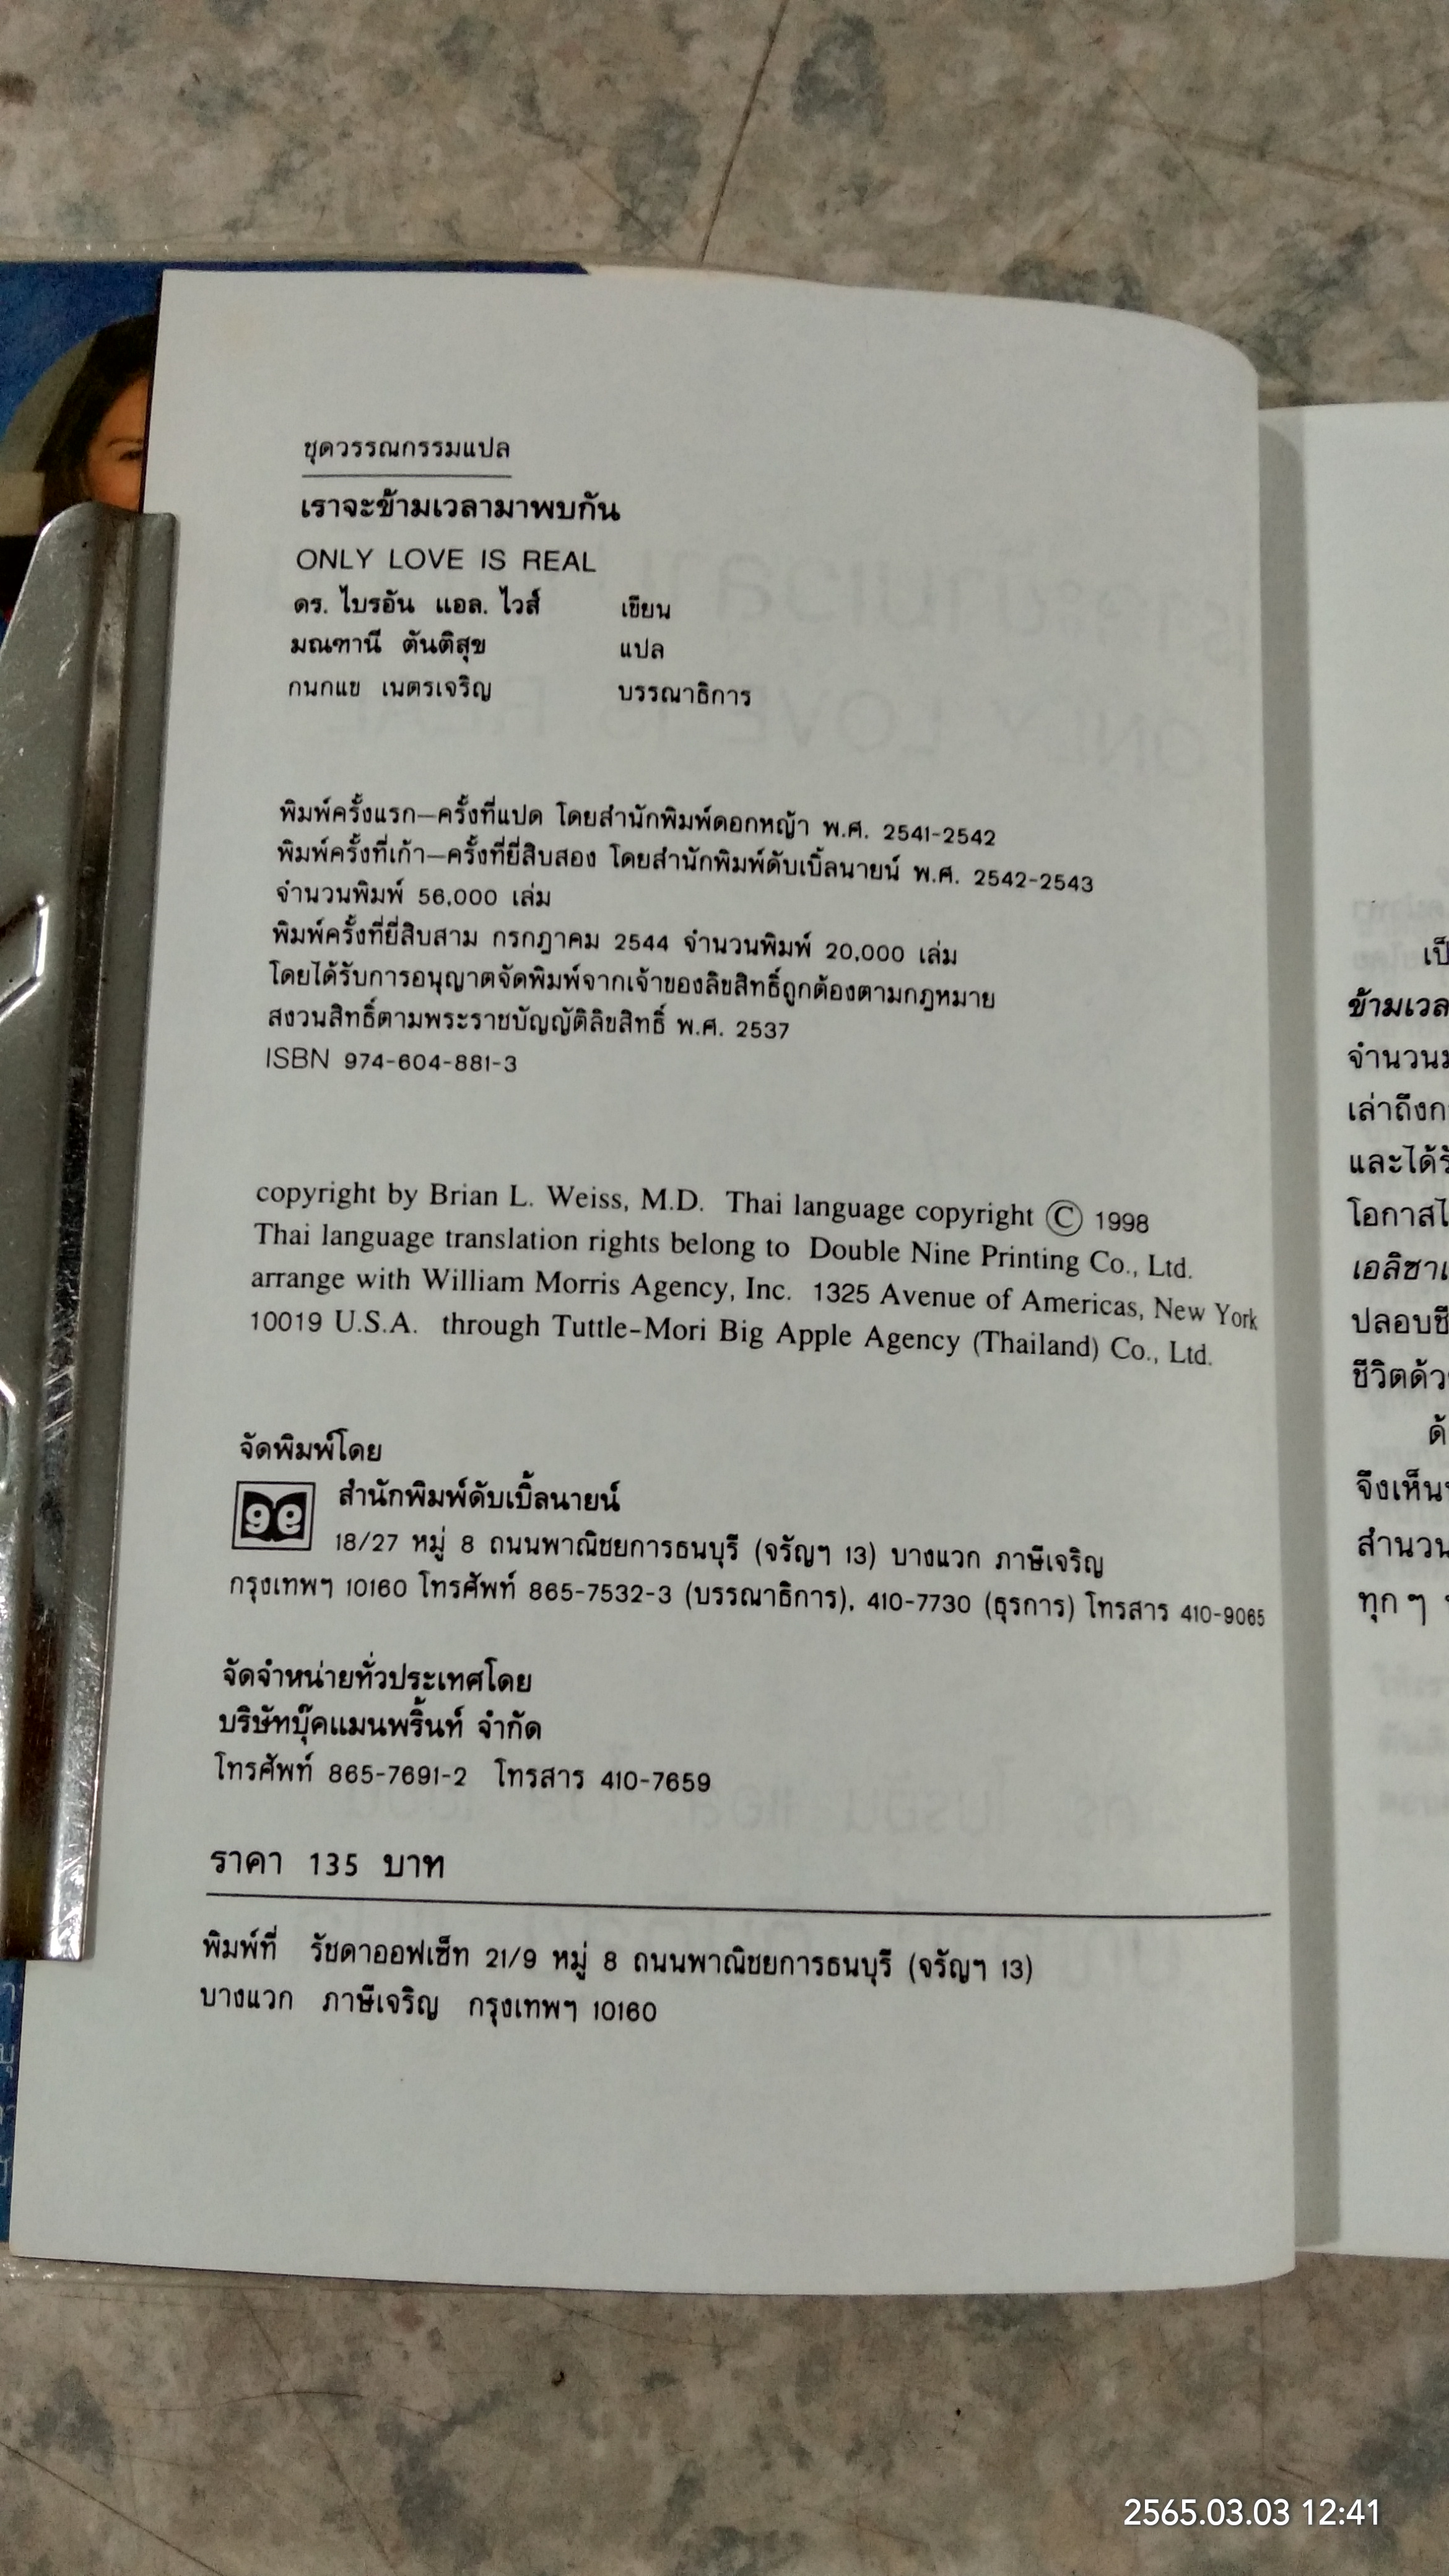 ชุดวรรณกรรมแปล
เราจะข้ามเวลามาพบกัน
ONLY LOVE IS REAL
ดร. ไบรอัน แอล. ไวส์ เขียน
มณฑานี ตันติสุข แปล
กนกแข เนตรเจริญ บรรณาธิการ
พิมพ์ครั้งแรก–ครั้งที่แปด โดยสำนักพิมพ์ดอกหญ้า พ.ศ. 2541-2542
พิมพ์ครั้งที่เก้า–ครั้งที่ยี่สิบสอง โดยสำนักพิมพ์ดับเบิ้ลนายน์ พ.ศ. 2542-2543
จำนวนพิมพ์ 56,000 เล่ม
พิมพ์ครั้งที่ยี่สิบสาม กรกฎาคม 2544 จำนวนพิมพ์ 20,000 เล่ม
โดยได้รับการอนุญาตจัดพิมพ์จากเจ้าของลิขสิทธิ์ถูกต้องตามกฎหมาย
สงวนสิทธิ์ตามพระราชบัญญัติลิขสิทธิ์ พ.ศ. 2537
ISBN 974-604-881-3
copyright by Brian L. Weiss, M.D. Thai language copyright © 1998
Thai language translation rights belong to Double Nine Printing Co., Ltd.
arrange with William Morris Agency, Inc. 1325 Avenue of Americas, New York
10019 U.S.A. through Tuttle-Mori Big Apple Agency (Thailand) Co., Ltd.
จัดพิมพ์โดย
สำนักพิมพ์ดับเบิ้ลนายน์
18/27 หมู่ 8 ถนนพาณิชยการธนบุรี (จรัญฯ 13) บางแวก ภาษีเจริญ
กรุงเทพฯ 10160 โทรศัพท์ 865-7532-3 (บรรณาธิการ), 410-7730 (ธุรการ) โทรสาร 410-9065
จัดจำหน่ายทั่วประเทศโดย
บริษัทบุ๊คแมนพริ้นท์ จำกัด
โทรศัพท์ 865-7691-2 โทรสาร 410-7659
ราคา 135 บาท
พิมพ์ที่ รัชดาออฟเซ็ท 21/9 หมู่ 8 ถนนพาณิชยการธนบุรี (จรัญฯ 13)
บางแวก ภาษีเจริญ กรุงเทพฯ 10160
เป็
ข้ามเวล
จำนวนม
เล่าถึงก
และได้รั
โอกาสไ
เอลิซาเ
ปลอบชี
ชีวิตด้ว
ด้
จึงเห็น
สำนวน
ทุกๆ
2565.03.03 12:41